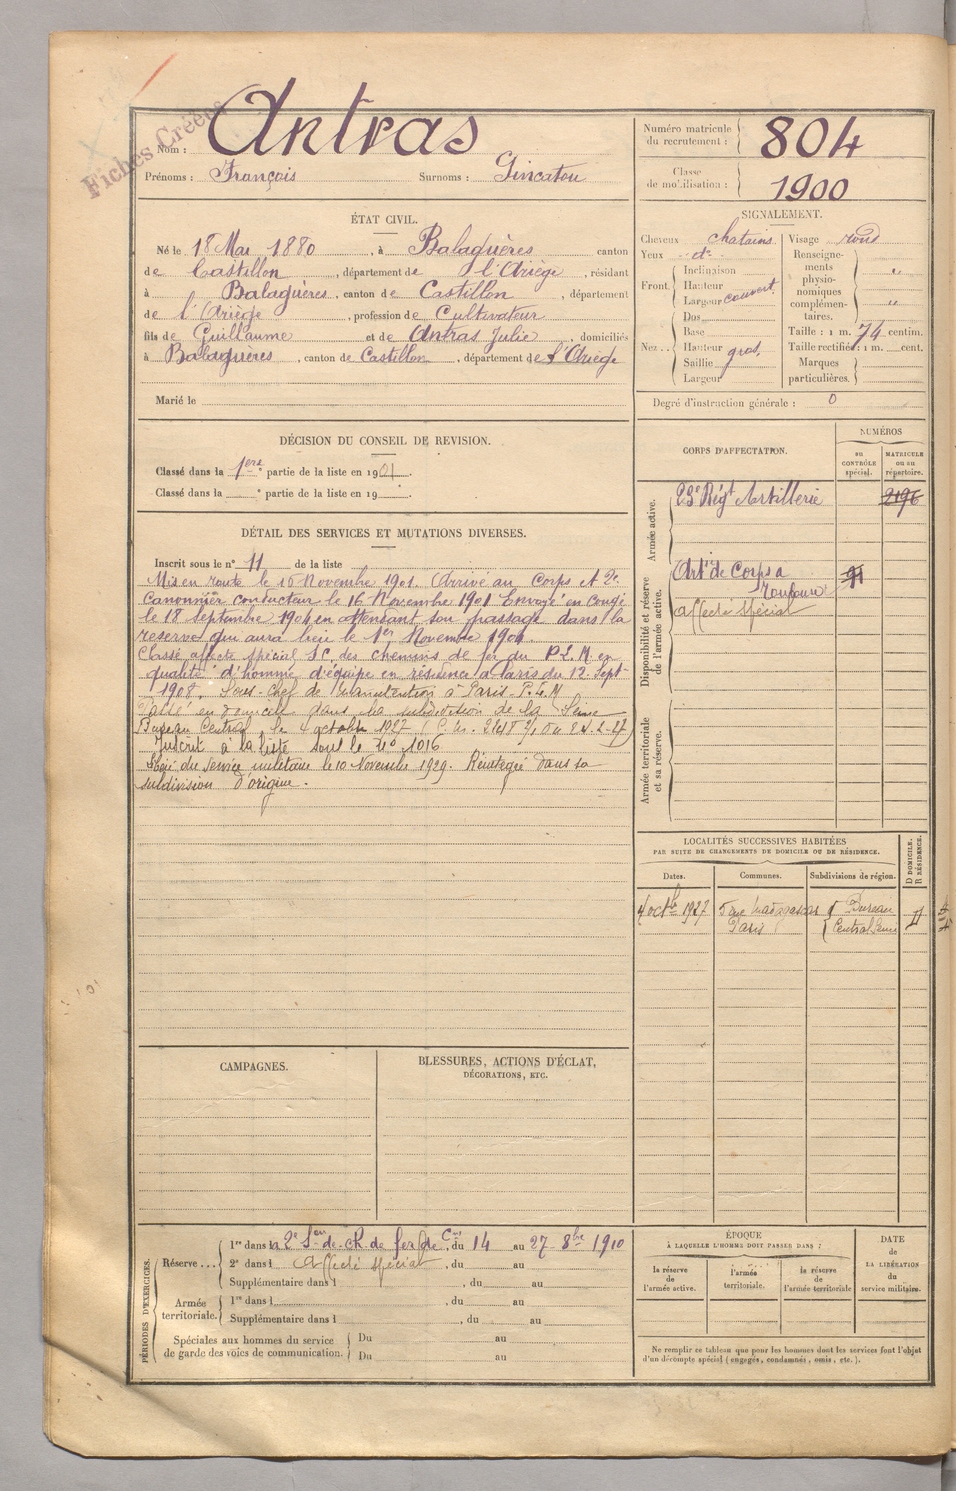 Fiches Créées
Nom : Antras
Prénoms : François Surnoms : Gincatou
Numéro matricule du recrutement : 804
Classe de mobilisation : 1900
ÉTAT CIVIL.
Né le 18 Mai 1880, à Balaguères canton
de Castillon, département de l'Ariège, résidant
à Balaguères, canton de Castillon, département
de l'Ariège, profession de Cultivateur
fils de Guillaume et de Antras Julie, domiciliés
à Balaguères, canton de Castillon, département de l'Ariège
Marié le
SIGNALEMENT.
Cheveux chatains.
Yeux dto
Front. Inclinaison
Hauteur
Largeur couvert
Nez... Dos
Base
Hauteur gros,
Saillie
Largeur
Visage rond
Renseignements physionomiques complémentaires. " "
Taille : 1 m. 74 centim.
Taille rectifiée : 1 m. cent.
Marques particulières.
Degré d'instruction générale : 0
DÉCISION DU CONSEIL DE REVISION.
Classé dans la 1ère partie de la liste en 1901.
Classé dans la e partie de la liste en 19 .
DÉTAIL DES SERVICES ET MUTATIONS DIVERSES.
Inscrit sous le n° 11 de la liste
Mis en route le 16 Novembre 1901. Arrivé au Corps et 2e
Canonnier conducteur le 16 Novembre 1901 Envoyé en Congé
le 18 septembre 1904 en attendant son passage dans la
réserve qui aura lieu le 1er Novembre 1904.
Classé affecté spécial S.C. des chemins de fer du P.L.M. en
qualité d'homme d'équipe en résidence à Paris du 12 Sept
1908. Sous-Chef de manutention à Paris-P.L.M
Passé en domicile dans la subdivision de la Seine
Bureau Central, le 4 octobre 1927
Inscrit à la liste sous le No 1016
Libéré du Service militaire le 10 Novembre 1929. Réintégré dans sa
subdivision d'origine.
CORPS D'AFFECTATION.
NUMÉROS
au CONTRÔLE spécial.
MATRICULE ou au répertoire.
Armée active.
23e Régt Artillerie 2196
Disponibilité et réserve de l'armée active.
Artie de Corps à Toulouse 11
affecté spécial
Armée territoriale et sa réserve.
LOCALITÉS SUCCESSIVES HABITÉES
PAR SUITE DE CHANGEMENTS DE DOMICILE OU DE RÉSIDENCE.
Dates. Communes. Subdivisions de région. D DOMICILE. R RÉSIDENCE.
4 octb 1927 5 rue Madagascar Paris Bureau Central Seine D
CAMPAGNES.
BLESSURES, ACTIONS D'ÉCLAT,
DÉCORATIONS, ETC.
PÉRIODES D'EXERCICES.
Réserve... 1re dans la 2e Son de ch. de fer de Cne, du 14 au 27 8bre 1910
2e dans l Affecté spécial, du au
Supplémentaire dans l , du au
Armée territoriale. 1re dans l , du au
Supplémentaire dans l , du au
Spéciales aux hommes du service de garde des voies de communication. Du au
Du au
ÉPOQUE
À LAQUELLE L'HOMME DOIT PASSER DANS :
la réserve de l'armée active.
l'armée territoriale.
la réserve de l'armée territoriale
DATE de LA LIBÉRATION du service militaire.
Ne remplir ce tableau que pour les hommes dont les services font l'objet
d'un décompte spécial (engagés, condamnés, omis, etc.).